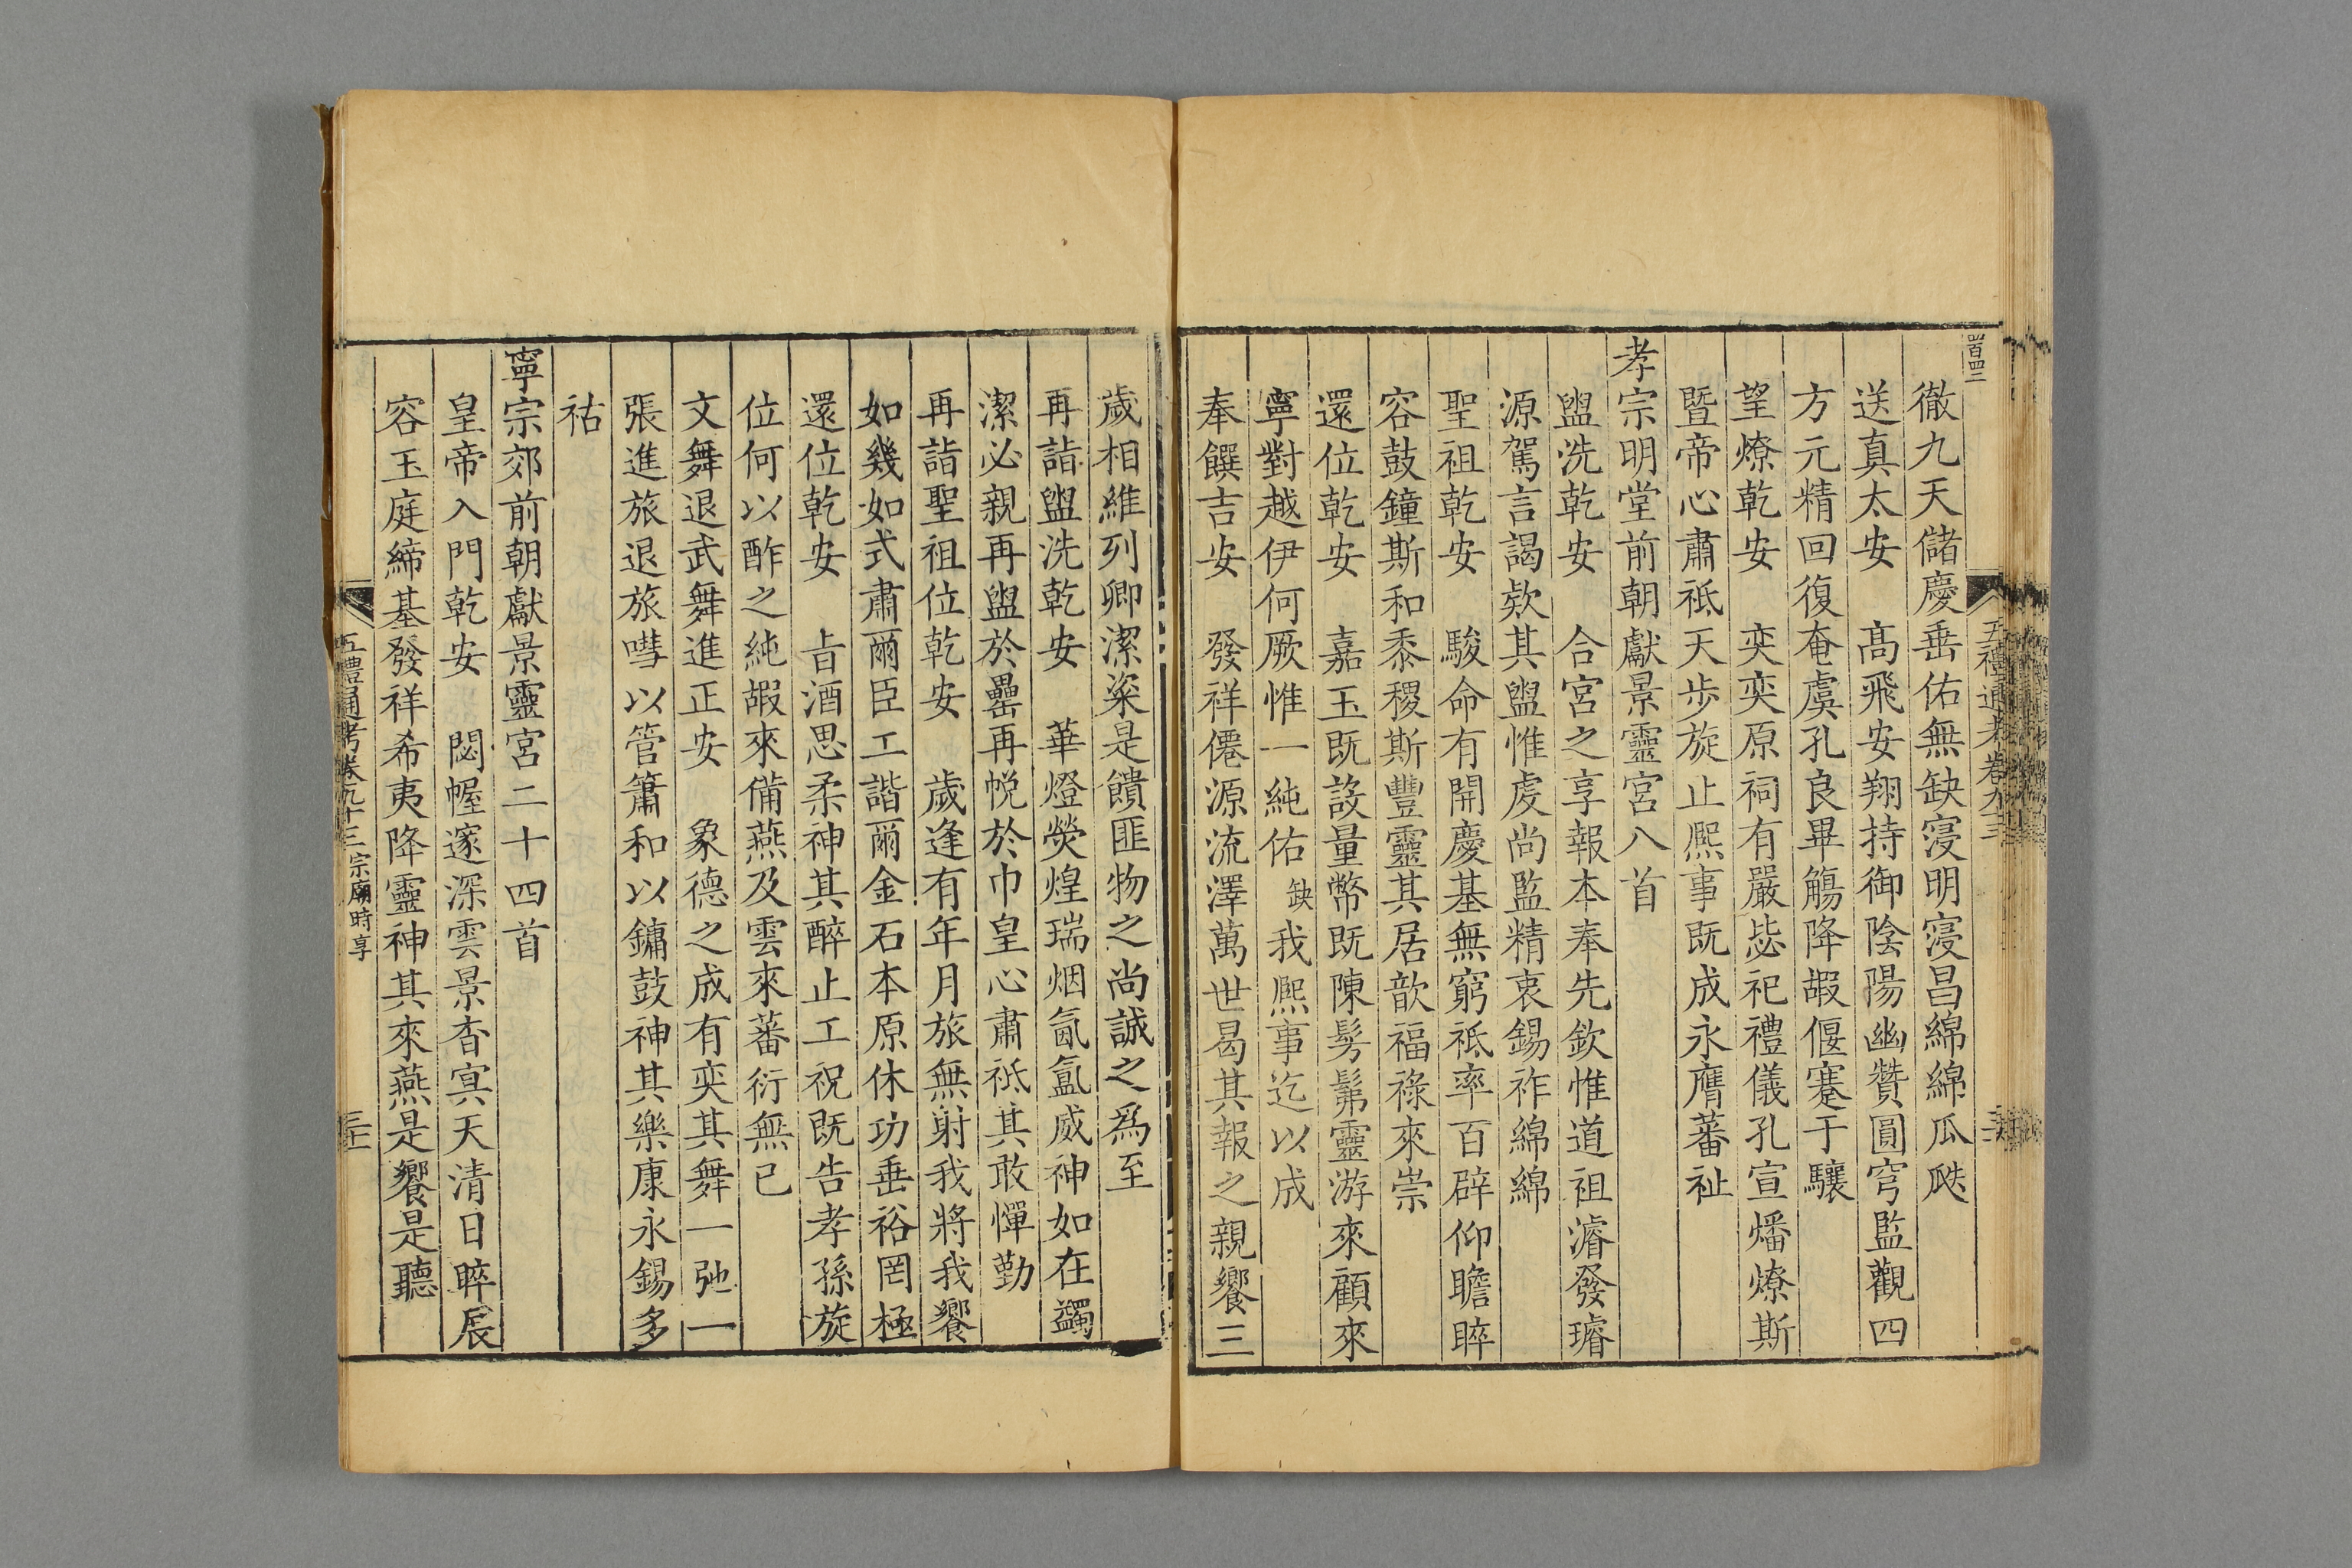 徹九天儲慶垂佑無缺寖明寖昌綿綿瓜瓞
送真太安　高飛安翔持御陰陽幽贊圓穹監觀四
方元精回復奄虞孔良畢觴降嘏偃蹇于驤
望燎乾安　奕奕原祠有嚴毖祀禮儀孔宣燔燎斯
暨帝心肅祗天步旋止熙事既成永膺蕃祉
孝宗明堂前朝獻景靈宮八首
盥洗乾安　合宮之享報本奉先欽惟道祖濬發璿
源駕言謁欵其盥惟虔尚監精衷錫祚綿綿
聖祖乾安　駿命有開慶基無窮祗率百辟仰瞻睟
容鼓鐘斯和黍稷斯豐靈其居歆福祿來崇
還位乾安　嘉玉既設量幣既陳髣髴靈游來顧來
寧對越伊何厥惟一純佑缺我熙事迄以成
奉饌吉安　發祥僊源流澤萬世曷其報之親饗三
歲相維列卿潔粢是饋匪物之尚誠之為至
再詣盥洗乾安　華燈熒煌瑞烟氤氳威神如在蠲
潔必親再盥於罍再帨於巾皇心肅祗其敢憚勤
再詣聖祖位乾安　歲逢有年月旅無射我將我饗
如幾如式肅爾臣工諧爾金石本原休功垂裕罔極
還位乾安　旨酒思柔神其醉止工祝既告孝孫旋
位何以酢之純嘏來備燕及雲來蕃衍無已
文舞退武舞進正安　象德之成有奕其舞一弛一
張進旅退旅嘒以管簫和以鏞鼓神其樂康永錫多
祜
寧宗郊前朝獻景靈宮二十四首
皇帝入門乾安　閟幄邃深雲景杳冥天清日晬展
容玉庭締基發祥希夷降靈神其來燕是饗是聽
五禮通考卷九十三宗廟時享